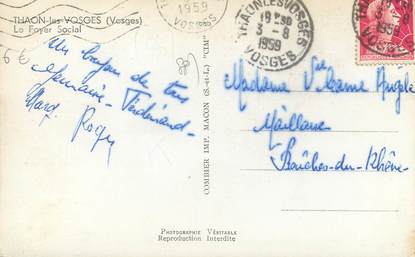 THAON-les-VOSGES (Vosges)
Le Foyer Social
6 €
Un bonjour de tous
Germaine - Ferdinand -
Marg. Roger
COMBIER IMP. MACON (S.-et-L.) "CIM"
PHOTOGRAPHIE VÉRITABLE
Reproduction Interdite
1959
VOSGES
THAON-LES-VOSGES
19H30
3-8
1959
VOSGES
3-8
1959
Madame Vve Angèle
Maillane
Bouches-du-Rhône